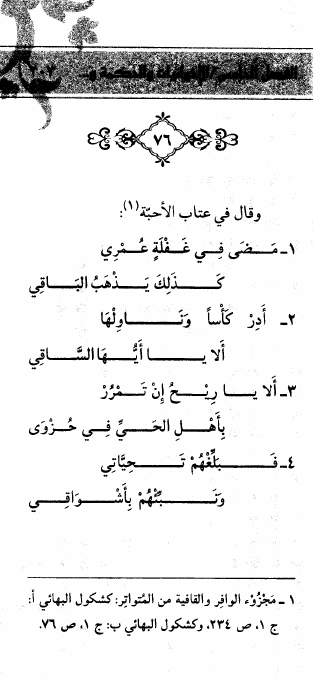 الفصل الخامس: الإخوانيات والحكمة و...
٧٦
وقال في عتاب الأحبّة(١):
١ـ مَـضَـى فِـي غَـفْلَةٍ عُـمْرِي
كَـذَلِكَ يَـذْهَبُ الـبَـاقِي
٢ـ أَدِرْ كَـأْسـاً وَنَـاوِلْـهَا
أَلا يـا أَيُّـهَا السَّـاقِي
٣ـ أَلا يـا رِيـحُ إِنْ تَـمْرُرْ
بِـأَهْـلِ الـحَـيِّ فِـي حُـزْوَى
٤ـ فَـبَـلِّغْهُمْ تَـحِيَّاتِي
وَنَـبِّئْهُمْ بِـأَشْـوَاقِـي
١ ـ مَجْزُوْء الوافِر والقافية من المُتواتِر: كشكول البهائي أ:
ج ١، ص ٢٣٤، وكشكول البهائي ب: ج ١، ص ٧٦.